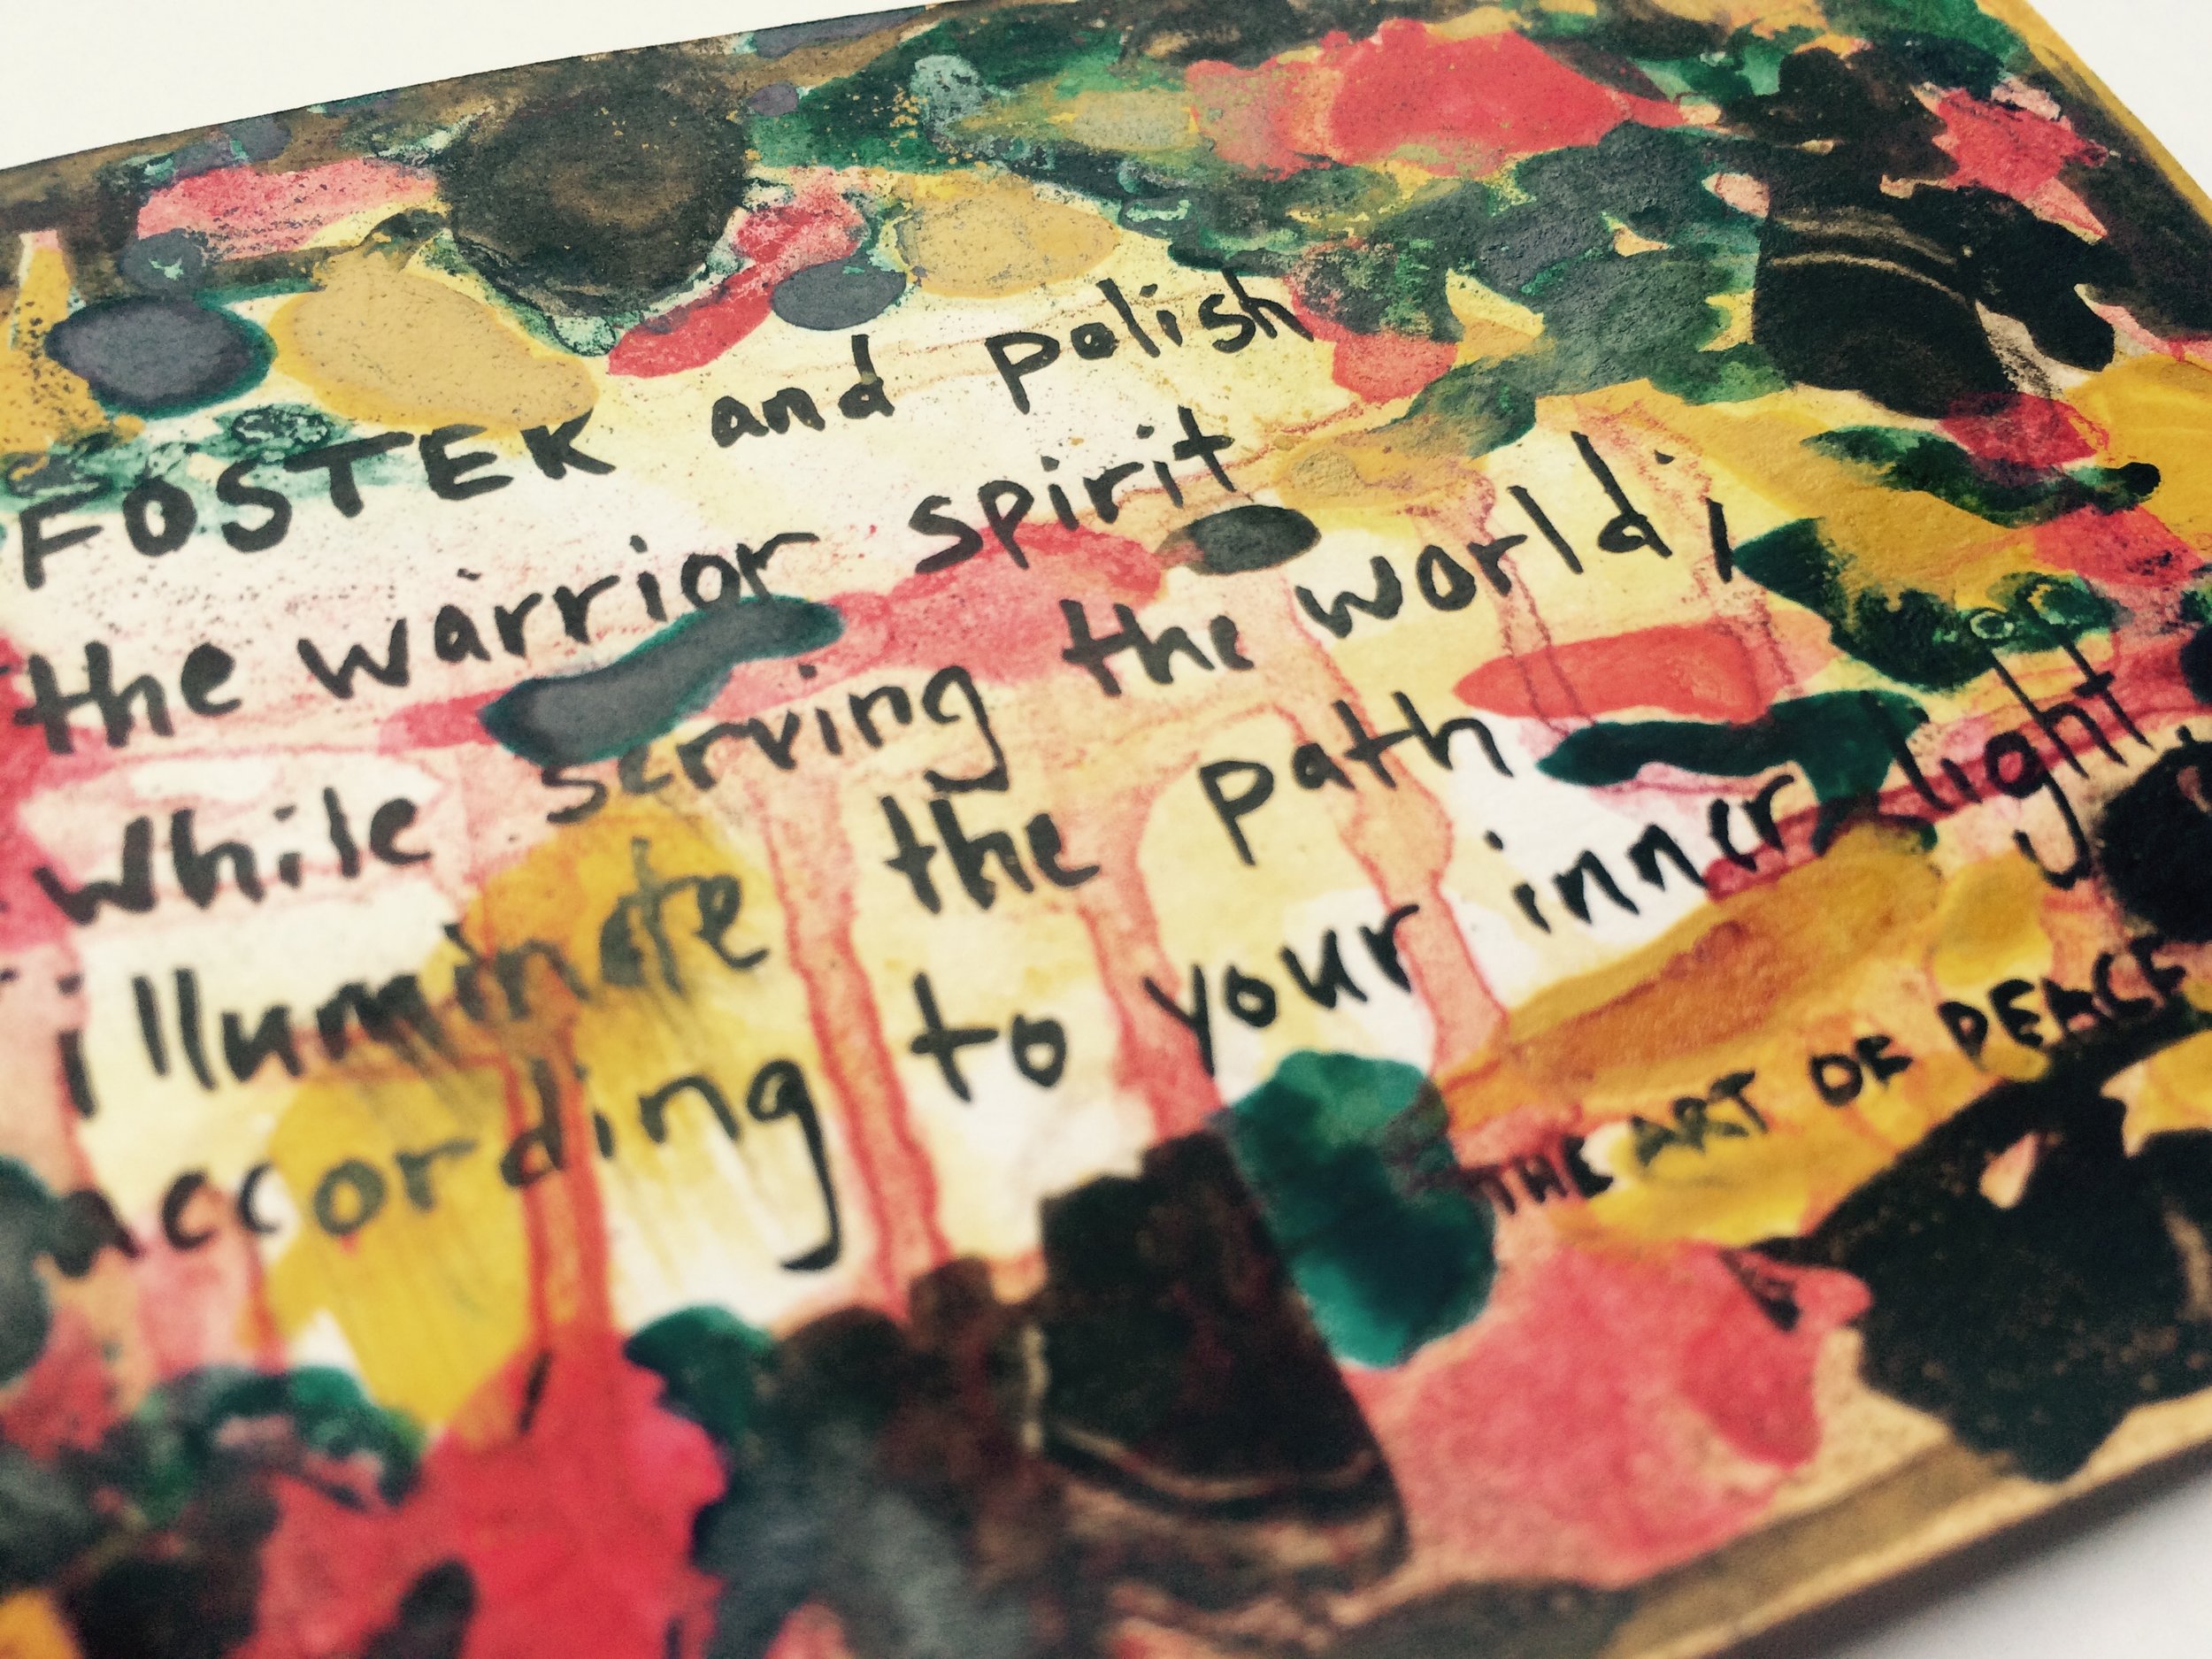 FOSTER and polish
the warrior spirit
while serving the world;
illuminate the path
according to your inner light.
THE ART OF PEACE